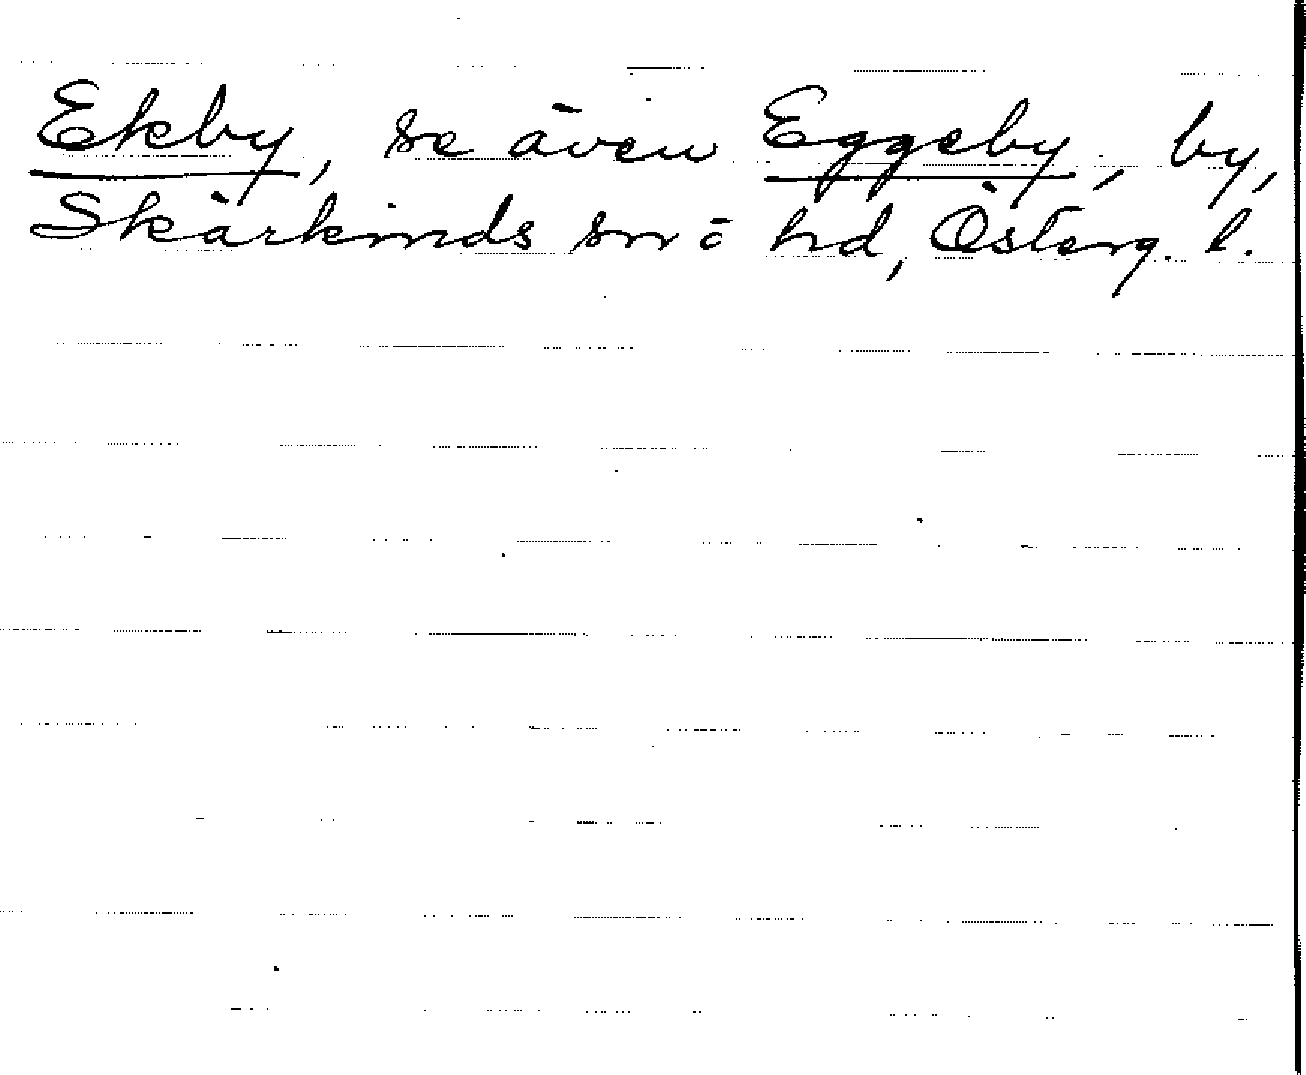 Ekby, se även Eggeby, by,
Skärkinds sn o hd, Österg. l.